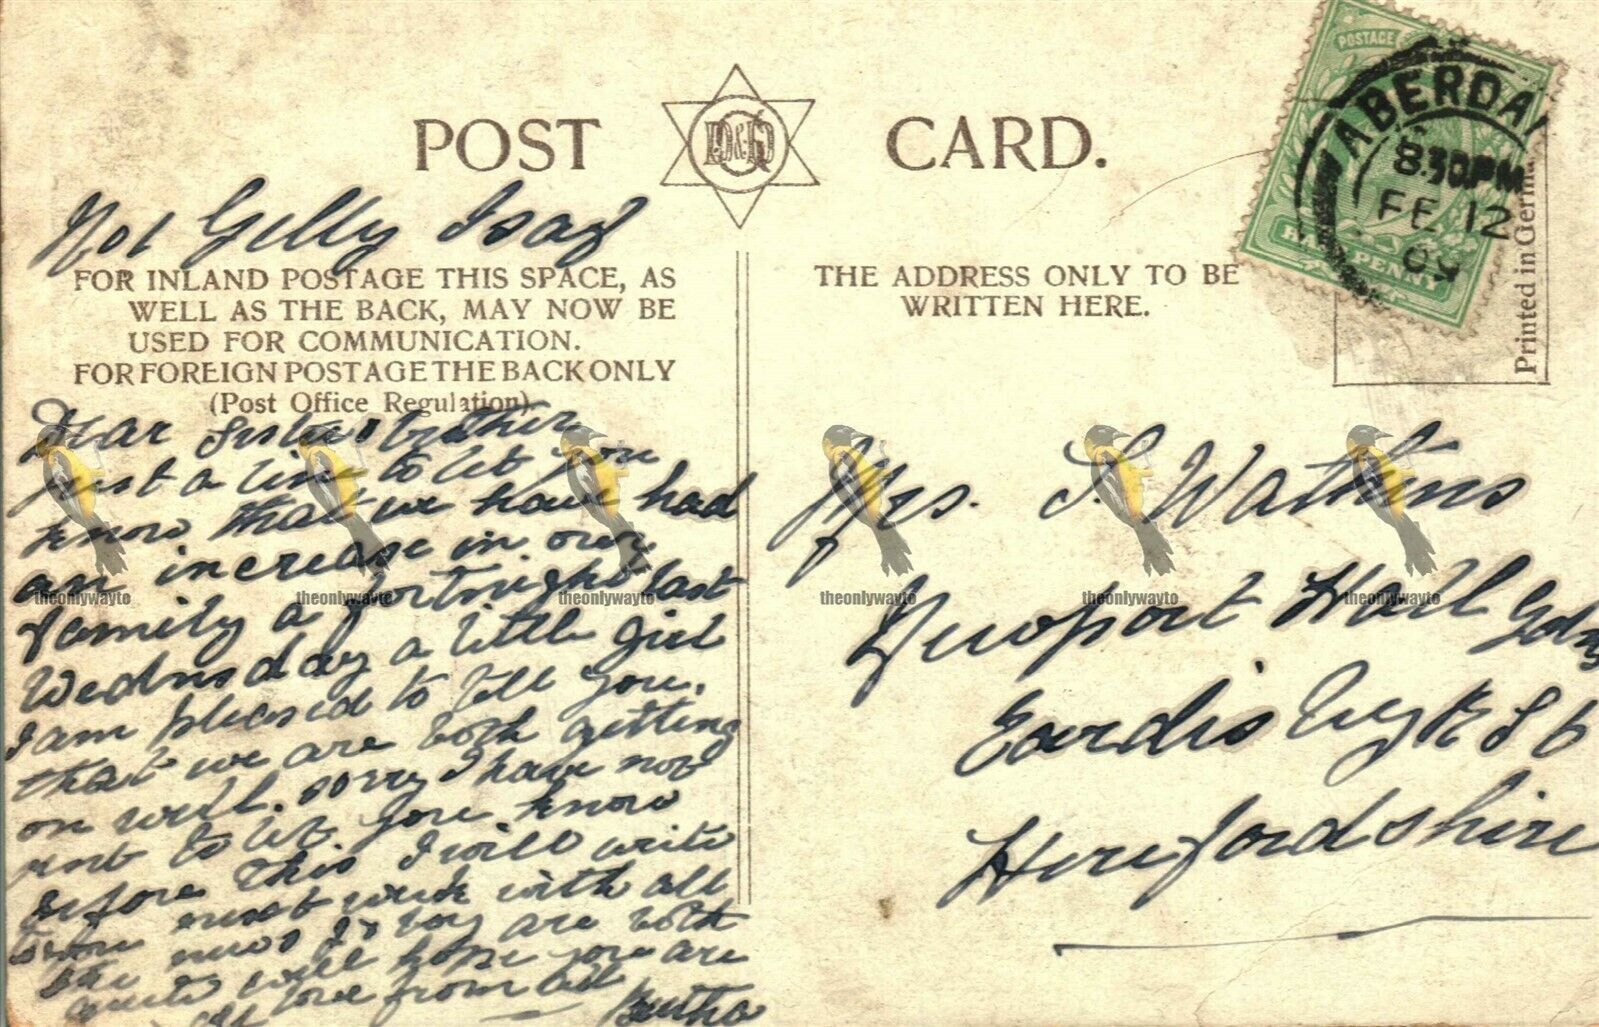 POST CARD.
D&D
Gelly Isaf
FOR INLAND POSTAGE THIS SPACE, AS
WELL AS THE BACK, MAY NOW BE
USED FOR COMMUNICATION.
FOR FOREIGN POSTAGE THE BACK ONLY
(Post Office Regulation)
Dear Sister & brother
Just a line to let you
know that we have had
an increase in our
family a fortnight last
Wednesday a little girl
I am pleased to tell you,
that we are both getting
on well. sorry I have not
to let you know
before this I will write
to you next week with all
the news boy are both
quite well hope you are
love from all
Bertha
THE ADDRESS ONLY TO BE
WRITTEN HERE.
POSTAGE
HALF PENNY
ABERDA
8.30PM
FE 12
09
Printed in Germa
Mrs. S. Watkins
Newport Hall Gdns
Eardis
Herefordshire
theonlywayto theonlywayto theonlywayto theonlywayto theonlywayto theonlywayto